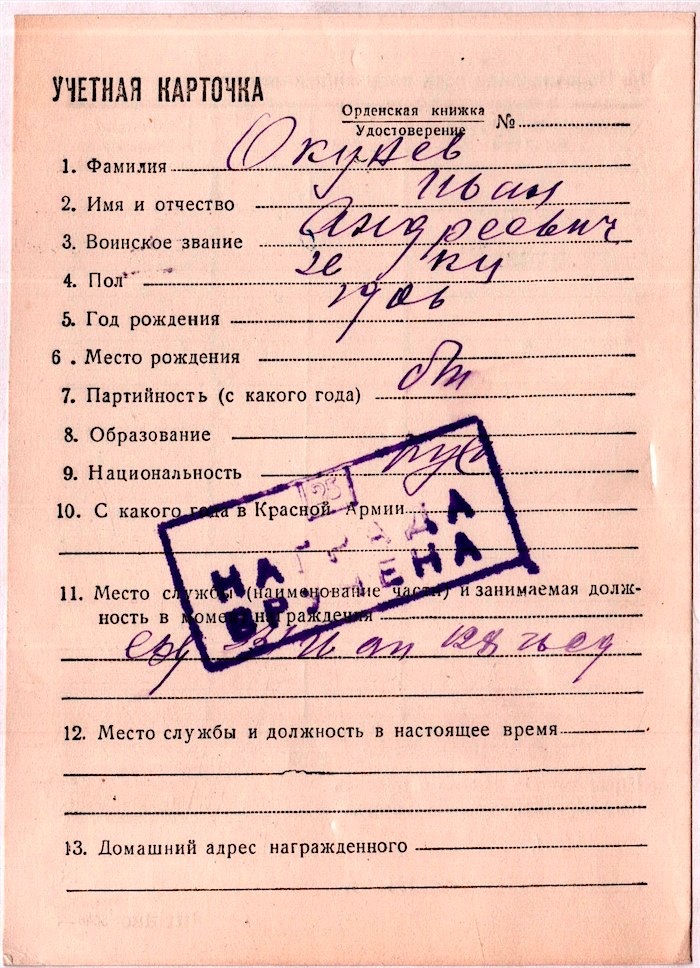 УЧЕТНАЯ КАРТОЧКА
Орденская книжка
Удостоверение №
1. Фамилия
2. Имя и отчество Иван
3. Воинское звание Андреевич
4. Пол
5. Год рождения 1906
6. Место рождения
7. Партийность (с какого года)
8. Образование
9. Национальность рус
10. С какого года в Красной Армии
25
НАГРАДА
ВРУЧЕНА
11. Место службы (наименование части) и занимаемая долж-
ность в момент награждения
12. Место службы и должность в настоящее время
13. Домашний адрес награжденного